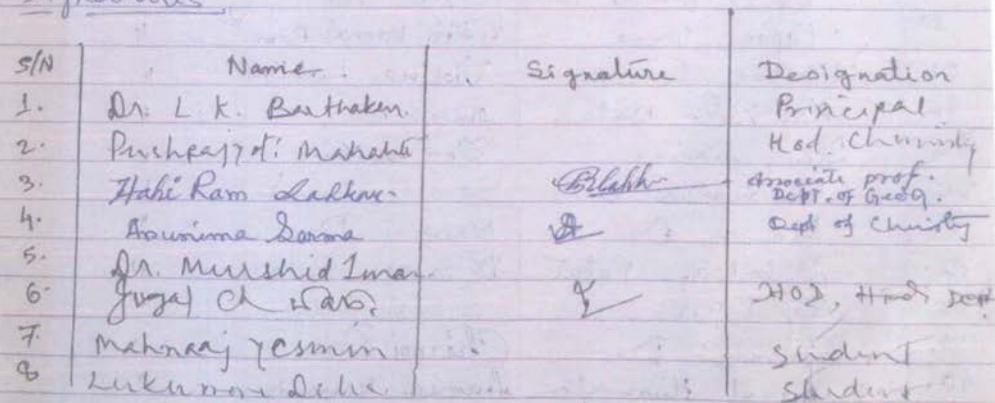 S/N Name. Signature Designation
1. Dr. L K. Barthakur. Principal
2. Pushpajyoti Mahanta Hod. Chemistry
3. Ram Lahkar Associate prof. Dept. of Geog.
4. Arunima Sarma Dept of Chemistry
5. Dr. Murshid Iman
6. Jugal Ch HOD, Hindi Dept
7. Mahnaaj Yesmin Student
8 Student